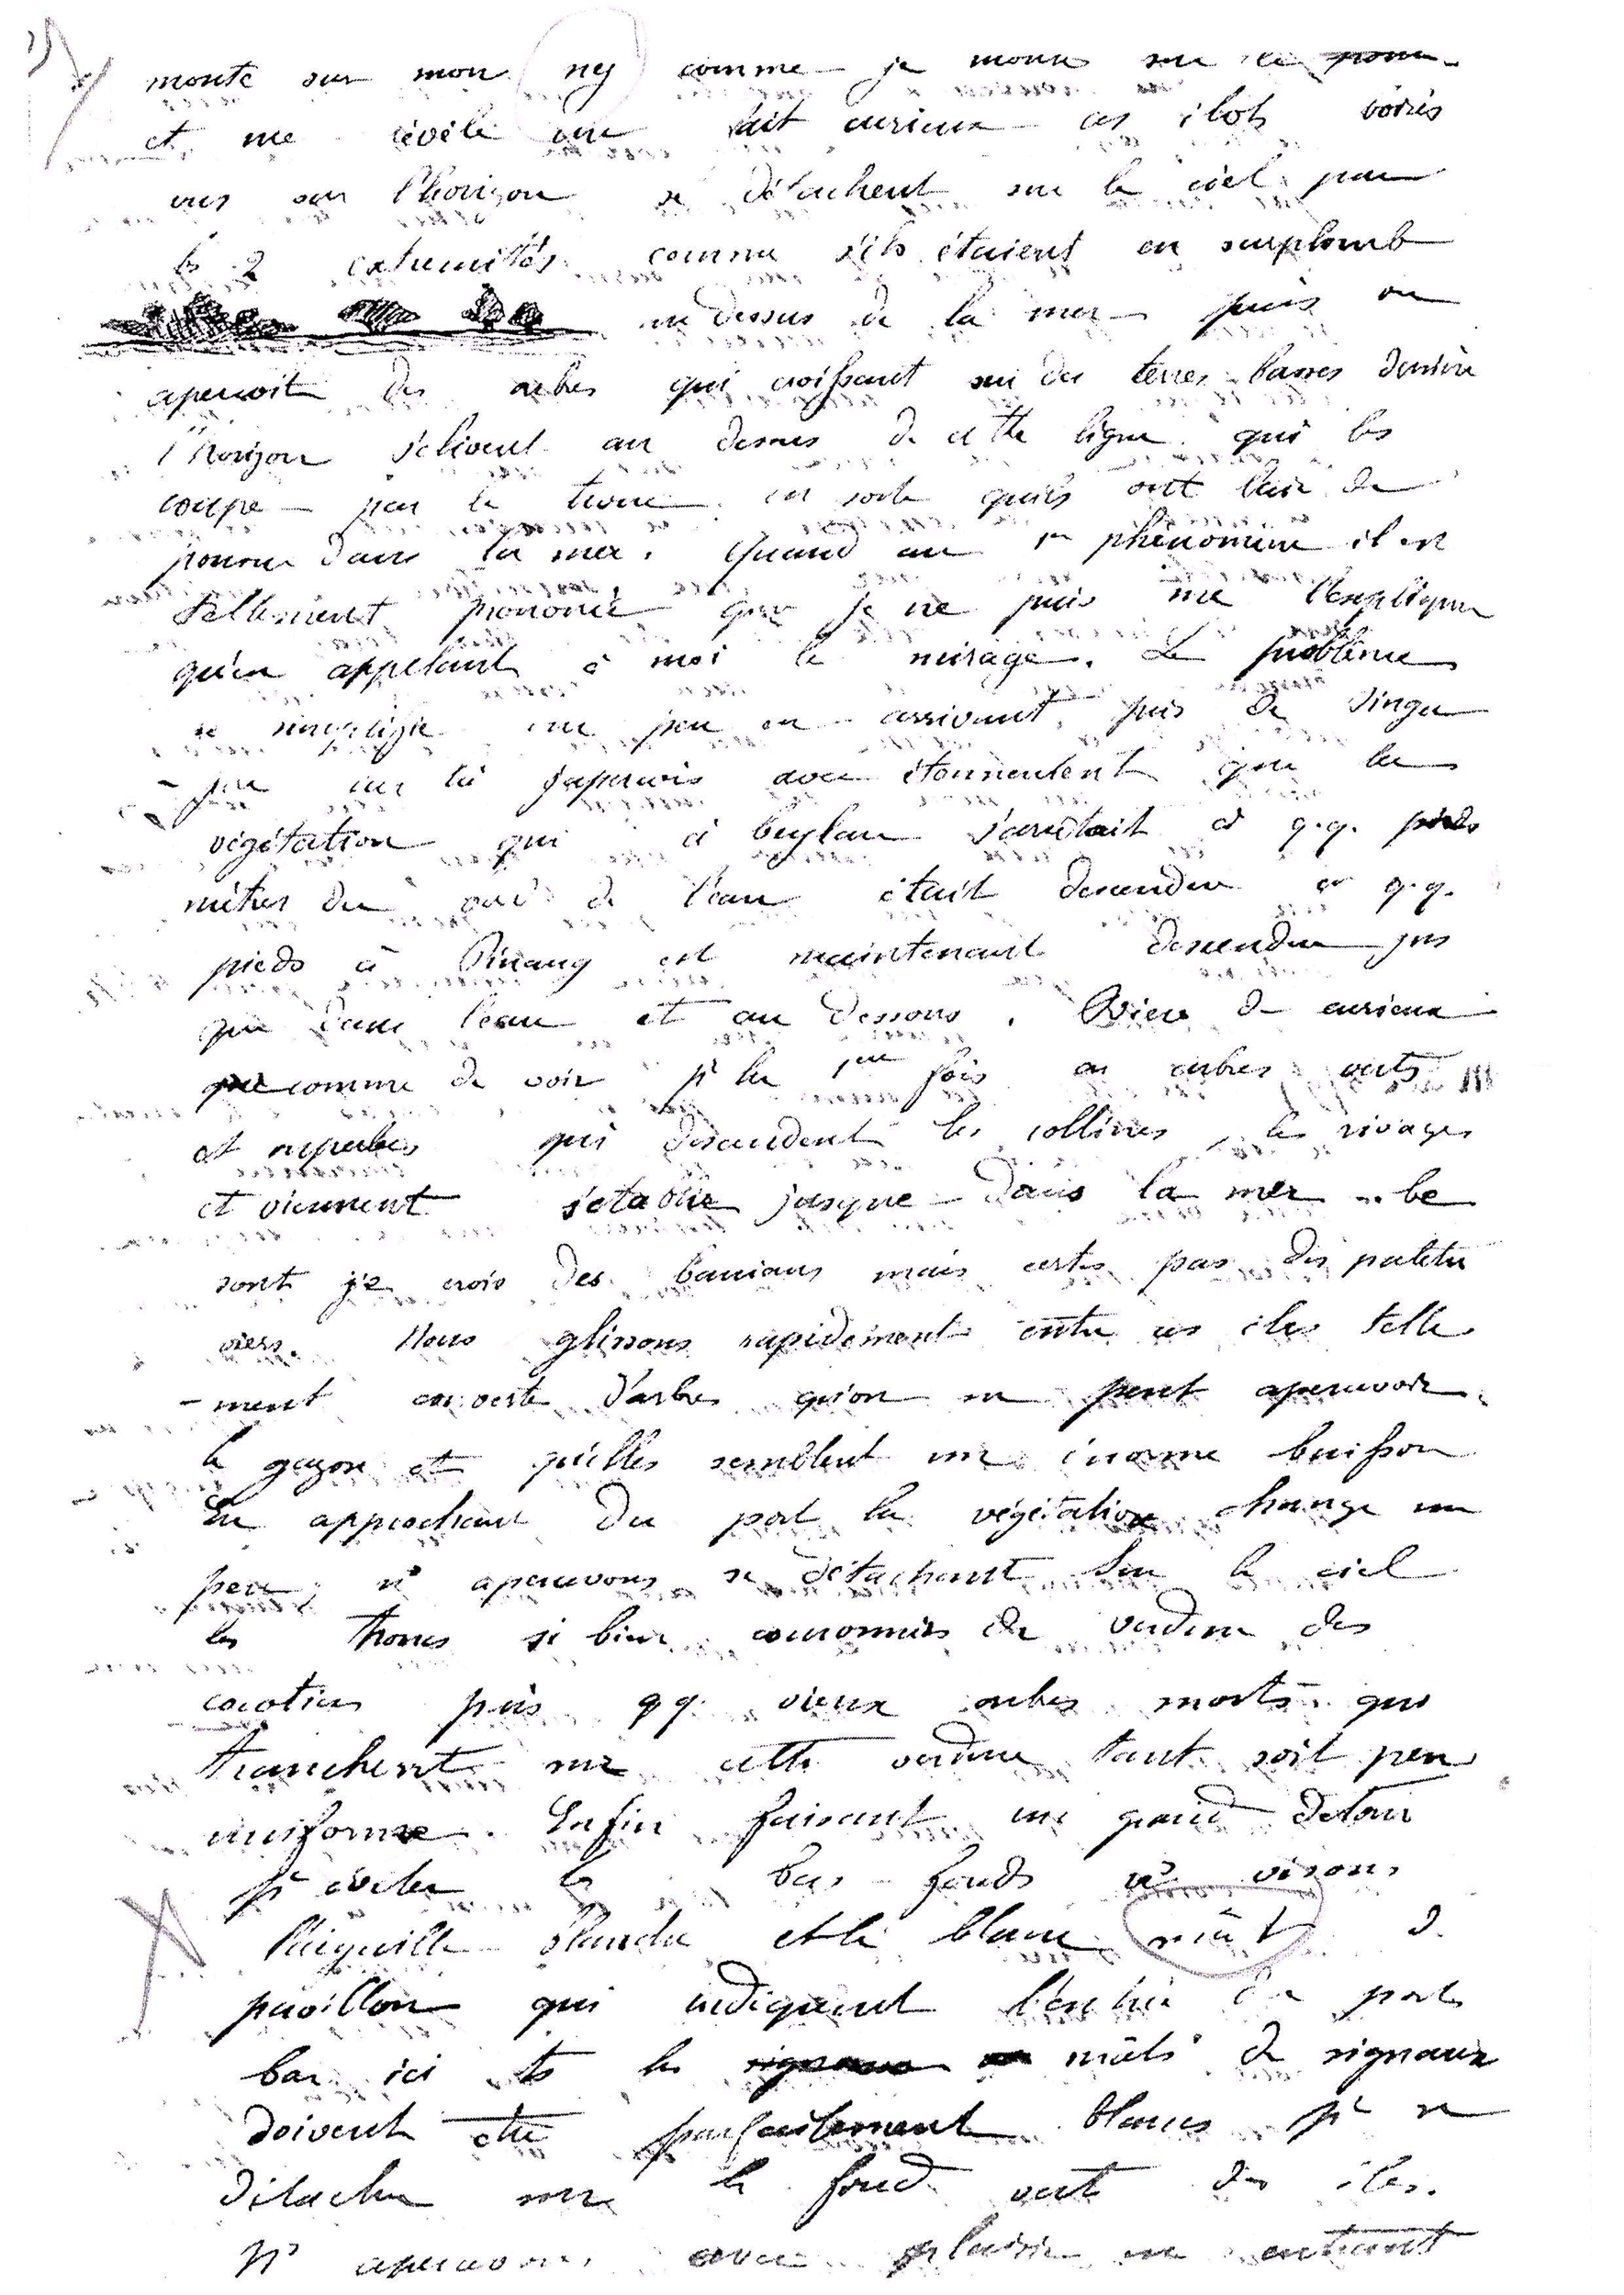 monte sur mon nez comme je monte sur le pont
et me révèle un fait curieux ces ilots boisés
vus sur l'horizon se détachent sur le ciel par
les 2 extremités comme s'ils étaient en surplomb
au dessus de la mer puis on
apercoit des arbres qui croissant sur des terres basses derrière
l'horizon s'elèvent au dessus de cette ligne qui les
coupe par le tronc en sorte qu'ils ont l'air de
pousser dans la mer. Quand au 1er phénomène il est
tellement prononcé que je ne puis me l'expliquer
qu'en appelant à moi le mirage. Le problème
se simplifie un peu en arrivant près de Singa
-pour car là j'apercois avec étonnement que la
végétation qui à Ceylan s'arretait à q.q. pieds
mètres du bord de l'eau était descendue à q.q.
pieds à Pinang est maintenant descendue jus
que dans l'eau et au dessous. Rien de curieux
que comme de voir pr la 1ere fois ces arbres verts
et superbes qui descendent les collines, les rivages
et viennent s'etablir jusque dans la mer. Ce
sont je crois des banians mais certes pas des paletu
viers. Nous glissons rapidement entre ces iles telle
-ment couverte d'arbres qu'on ne peut apercevoir
le gazon et qu'elles semblent un énorme buisson
En approchant du port la végétation change un
peu; ns apercevons se détachant sur le ciel
les troncs si bien couronnés de verdure des
cocotiers puis qq. vieux arbres morts qui
tranchent sur cette verdure tant soit peu
uniforme. Enfin faisant un grand detour
pr éviter les bas-fonds ns visons
l'aiguille blanche et le blanc mât de
pavillon qui indiquent l'entrée du port
car ici ts les signaux mâts de signaux
doivent etre parfaitement blancs pr se
détacher sur le fond vert des iles.
Ns apercevons avec plaisir en entrant